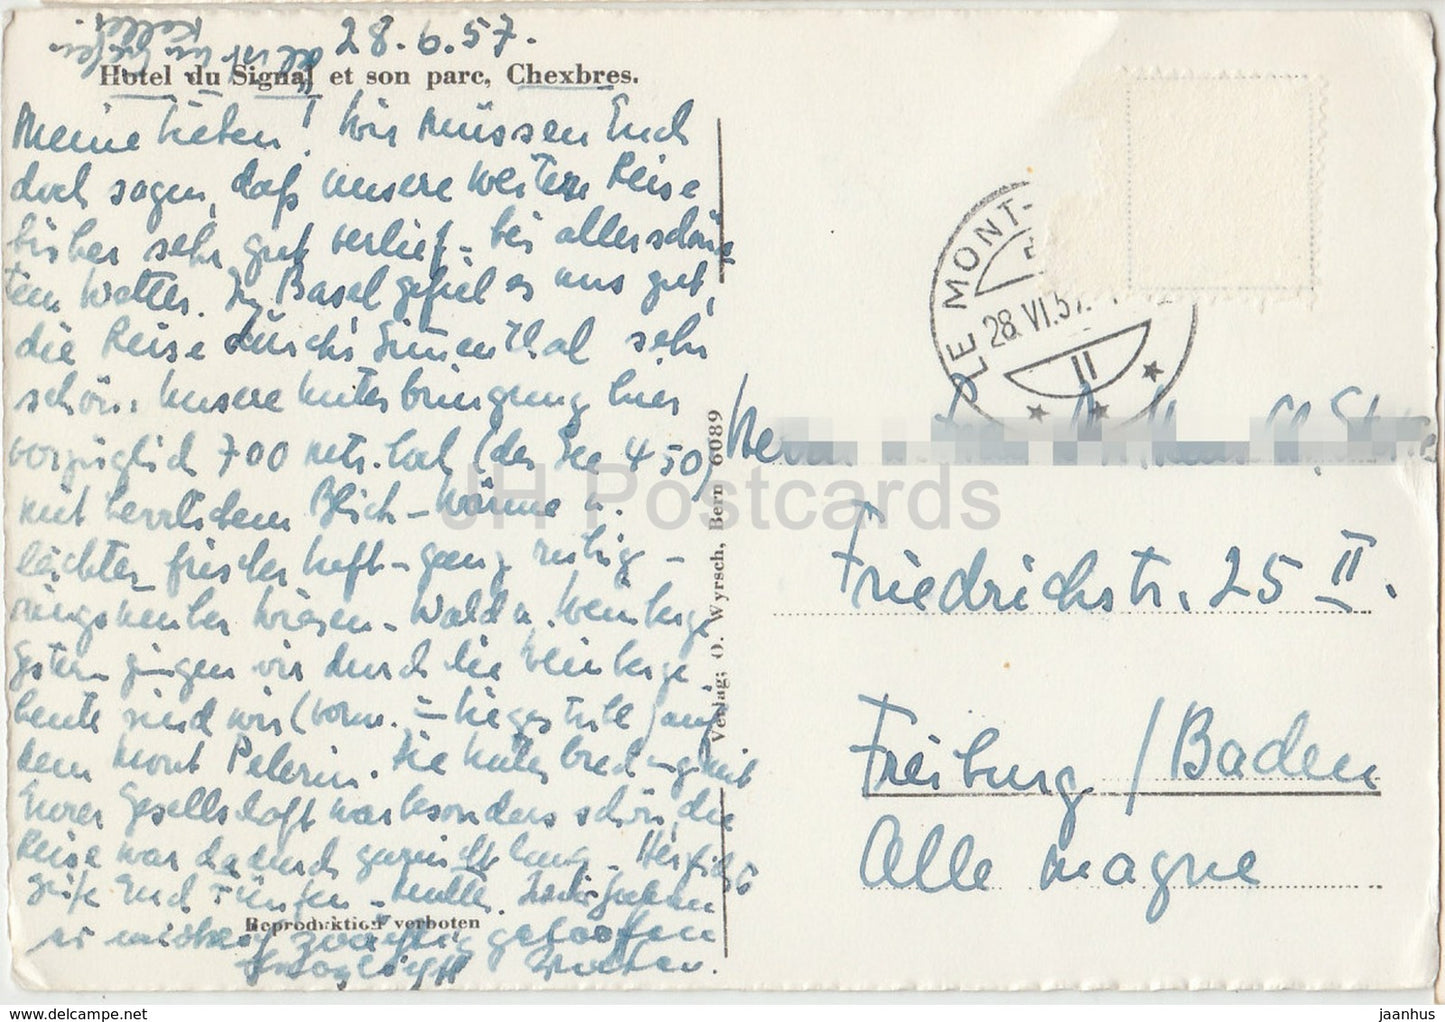 28.6.57.
Keller
Hotel du Signal et son parc, Chexbres.
Meine Lieben! Wir müssen Euch
doch sagen, daß unsere weitere Reise
bisher sehr gut verlief – bei allerschöns-
tem Wetter. In Basel gefiel es uns gut,
die Reise durchs Simmenthal sehr
schön. Unsere Unterbringung hier
vorzüglich 700 mtr. hoch (der See 450)
mit herrlichem Blick – Wärme u.
leichter frischer Luft – ganz ruhig –
ringsumher Wiesen – Wald u. Weinberge
Gestern gingen wir durch die Weinberge
heute sind wir (vorm. – Liegestuhl) auf
dem Mont Pelerin. Die Unterbrechung mit
Eurer Gesellschaft war besonders schön, die
Reise war dadurch garnicht lang – Herzlichst
grüße Euch Fünfen – Mutter.
Reproduktion verboten
Verlag; O. Wyrsch, Bern 6089
LE MONT-
28. VI. 57.
II
Herrn
Friedrichstr. 25 II.
Freiburg / Baden
Allemagne
JH Postcards
https://www.jaanhus.com
jaanhus